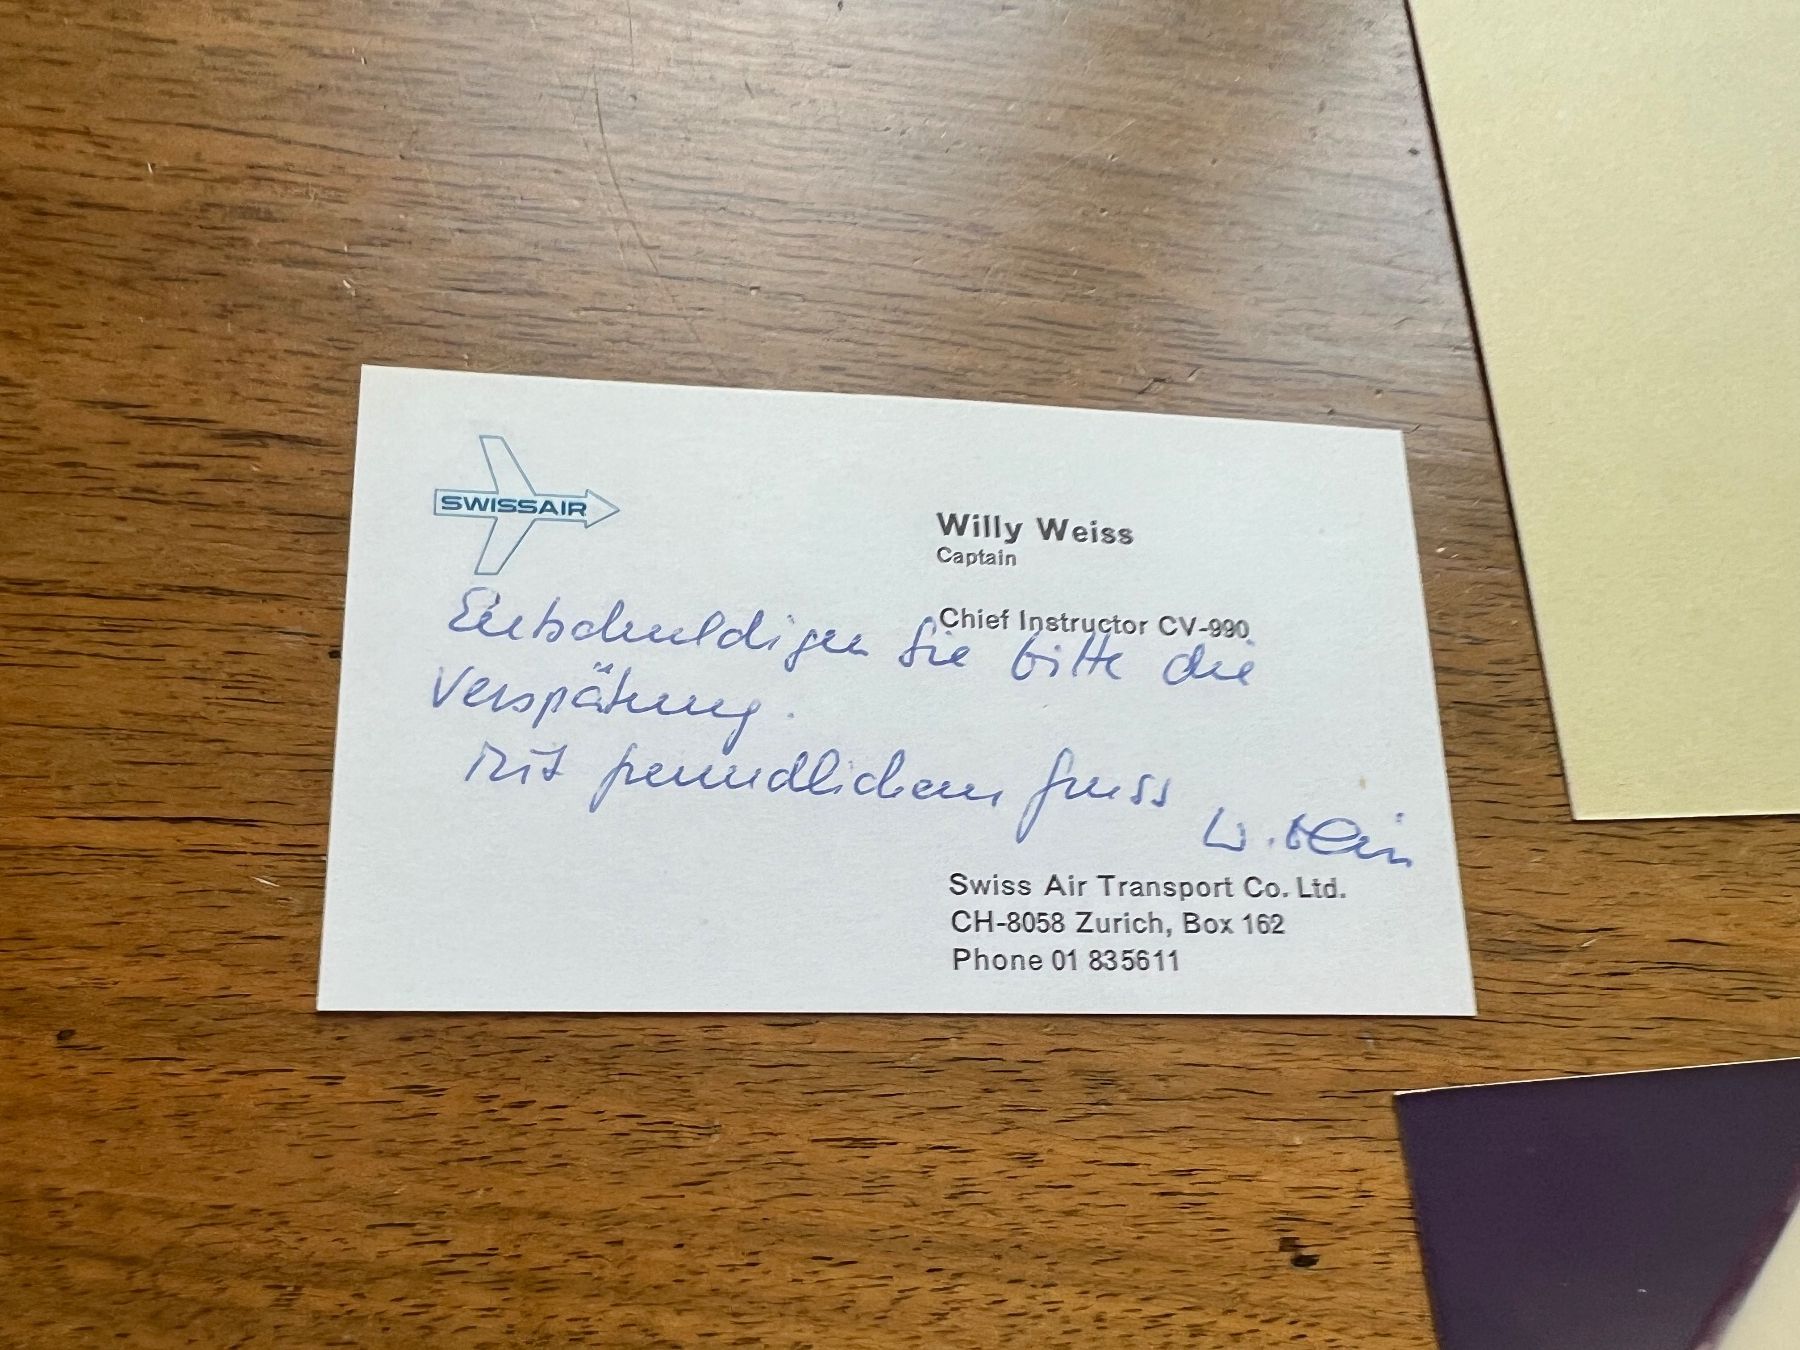 SWISSAIR
Willy Weiss
Captain
Chief Instructor CV-990
Entschuldigen Sie bitte die
Verspätung.
Mit freundlichem Gruss
W. Weiss
Swiss Air Transport Co. Ltd.
CH-8058 Zurich, Box 162
Phone 01 835611